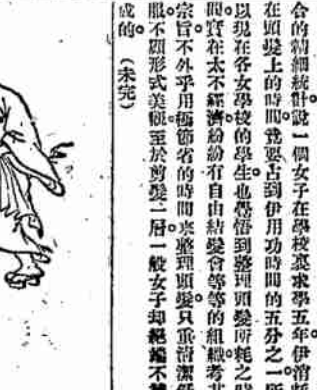 合的精細統計。說一個女子在學校裏求學五年。伊消耗
在頭髮上的時間。竟要占到伊用功時間的五分之一。所
以現在各女學校的學生。也覺悟到整理頭髮所耗之時
間。實在太不經濟。紛紛有自由結髮會等等的組織。考其
宗旨。不外乎用極節省的時間來整理頭髮。只重清潔舒
服。不顧形式美觀。至於剪髮一層。一般女子却絕端不贊
成的。（未完）